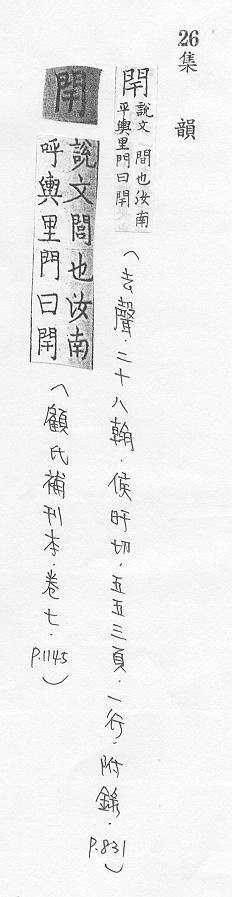 26
集韻
閈
說文閭也汝南
平輿里門曰閈
(去聲．二十八翰．侯旰切．五五三頁．一行．附錄．P.831)
閈
說文閭也汝南
呼輿里門曰閈
(顧氏補刊本．卷七．P.1145)